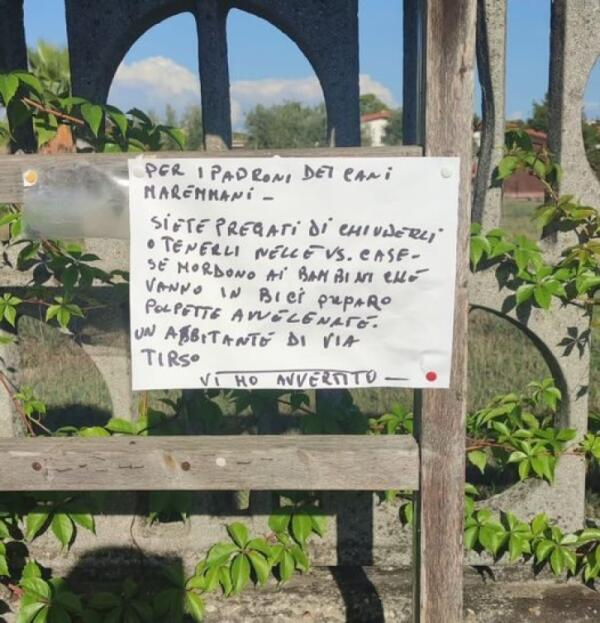 PER I PADRONI DEI CANI
MAREMMANI -
SIETE PREGATI DI CHIUDERLI
O TENERLI NELLE VS. CASE -
SE MORDONO AI BAMBINI CHE
VANNO IN BICI PREPARO
POLPETTE AVVELENATE.
UN ABBITANTE DI VIA
TIRSO
VI HO AVVERTITO -